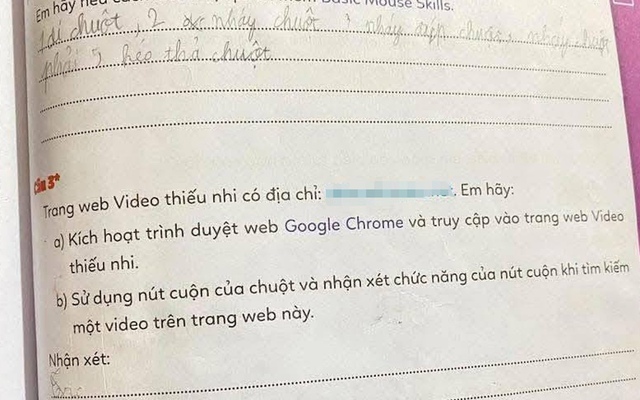 Em hãy nêu Basic Mouse Skills.
chuột, 2 nháy chuột 3 nháy chuột
phải 5 kéo thả chuột
Câu 3*
Trang web Video thiếu nhi có địa chỉ: . Em hãy:
a) Kích hoạt trình duyệt web Google Chrome và truy cập vào trang web Video
thiếu nhi.
b) Sử dụng nút cuộn của chuột và nhận xét chức năng của nút cuộn khi tìm kiếm
một video trên trang web này.
Nhận xét: